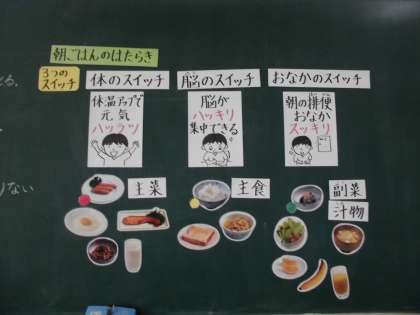 朝ごはんのはたらき
3つの
スイッチ
体のスイッチ
脳のスイッチ
おなかのスイッチ
体温アップで
元気
ハツラツ
脳が
ハッキリ
集中できる。
朝の排便
おなか
スッキリ
主菜
主食
副菜
汁物
る。
ない